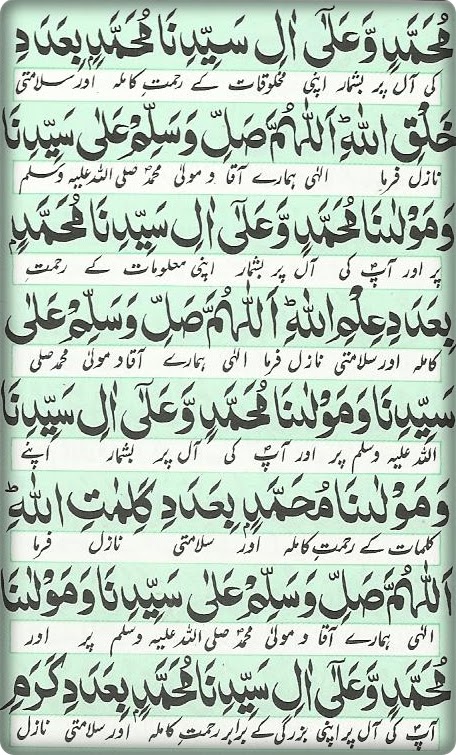 مُحَمَّدٍ وَّعَلٰٓى اٰلِ سَيِّدِنَا مُحَمَّدٍۢ بِعَدَدِ
کی آل پر بشمار اپنی مخلوقات کے رحمتِ کاملہ اور سلامتی
خَلْقِ اللّٰهِ ؕ اَللّٰهُمَّ صَلِّ وَسَلِّمْ عَلٰى سَيِّدِنَا
نازل فرما الٰہی ہمارے آقا و مولیٰ محمد صلی اللہ علیہ وسلم
وَمَوْلٰىنَا مُحَمَّدٍ وَّعَلٰٓى اٰلِ سَيِّدِنَا مُحَمَّدٍۢ
پر اور آپؐ کی آل پر بشمار اپنی معلومات کے رحمتِ
بِعَدَدِ عِلْمِ اللّٰهِ ؕ اَللّٰهُمَّ صَلِّ وَسَلِّمْ عَلٰى
کاملہ اور سلامتی نازل فرما الٰہی ہمارے آقا و مولیٰ محمد صلی
سَيِّدِنَا وَمَوْلٰىنَا مُحَمَّدٍ وَّعَلٰٓى اٰلِ سَيِّدِنَا
اللہ علیہ وسلم پر اور آپؐ کی آل پر بشمار اپنے
وَمَوْلٰىنَا مُحَمَّدٍۢ بِعَدَدِ كَلِمٰتِ اللّٰهِ ؕ
کلمات کے رحمتِ کاملہ اور سلامتی نازل فرما
اَللّٰهُمَّ صَلِّ وَسَلِّمْ عَلٰى سَيِّدِنَا وَمَوْلٰىنَا
الٰہی ہمارے آقا و مولیٰ محمدؐ صلی اللہ علیہ وسلم پر اور
مُحَمَّدٍ وَّعَلٰٓى اٰلِ سَيِّدِنَا مُحَمَّدٍۢ بِعَدَدِ كَرَمِ
آپؐ کی آل پر اپنی بزرگی کے برابر رحمتِ کاملہ اور سلامتی نازل